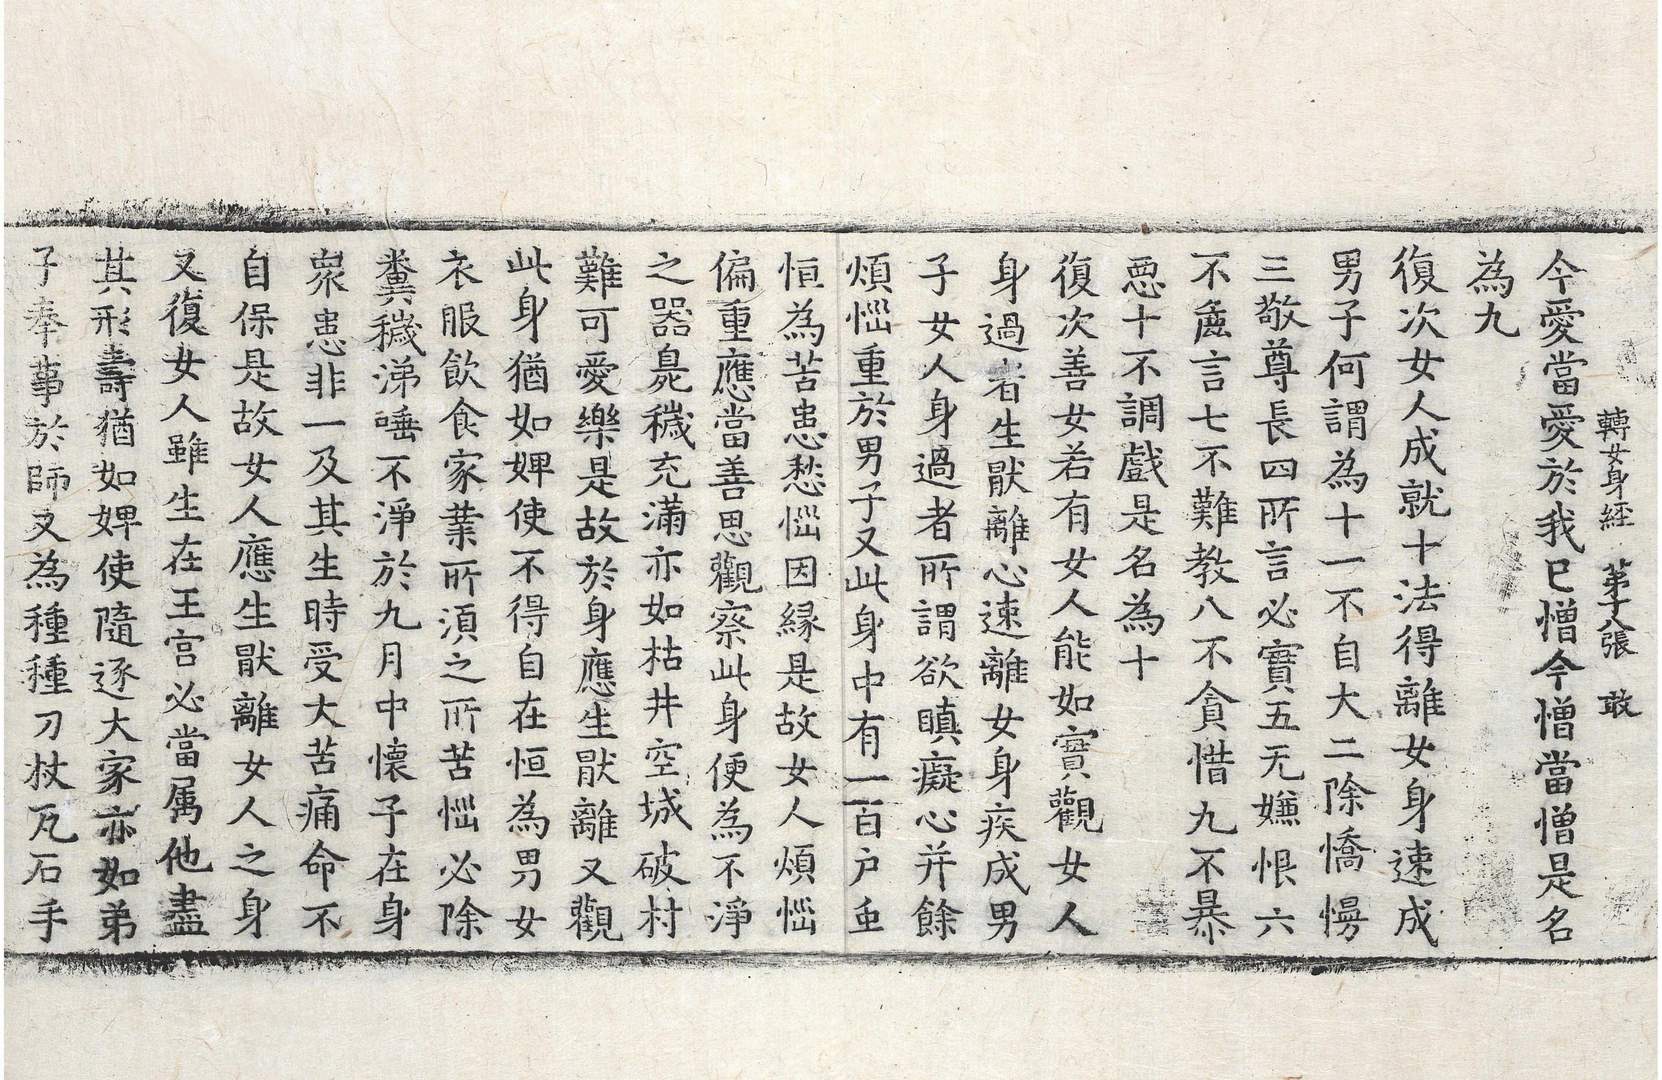 轉女身經 第十八張 敢
今愛當愛於我已憎今憎當憎是名
為九
復次女人成就十法得離女身速成
男子何謂為十一不自大二除憍慢
三敬尊長四所言必實五无嫌恨六
不麁言七不難教八不貪惜九不暴
惡十不調戲是名為十
復次善女若有女人能如實觀女人
身過者生猒離心速離女身疾成男
子女人身過者所謂欲瞋癡心并餘
煩惱重於男子又此身中有一百户虫
恒為苦患愁惱因縁是故女人煩惱
偏重應當善思觀察此身便為不淨
之器臰穢充滿亦如枯井空城破村
難可愛樂是故於身應生猒離又觀
此身猶如婢使不得自在恒為男女
衣服飲食家業所湏之所苦惱必除
糞穢涕唾不淨於九月中懷子在身
衆患非一及其生時受大苦痛命不
自保是故女人應生猒離女人之身
又復女人雖生在王宮必當属他盡
其形壽猶如婢使隨逐大家亦如弟
子奉事於師又為種種刀杖瓦石手